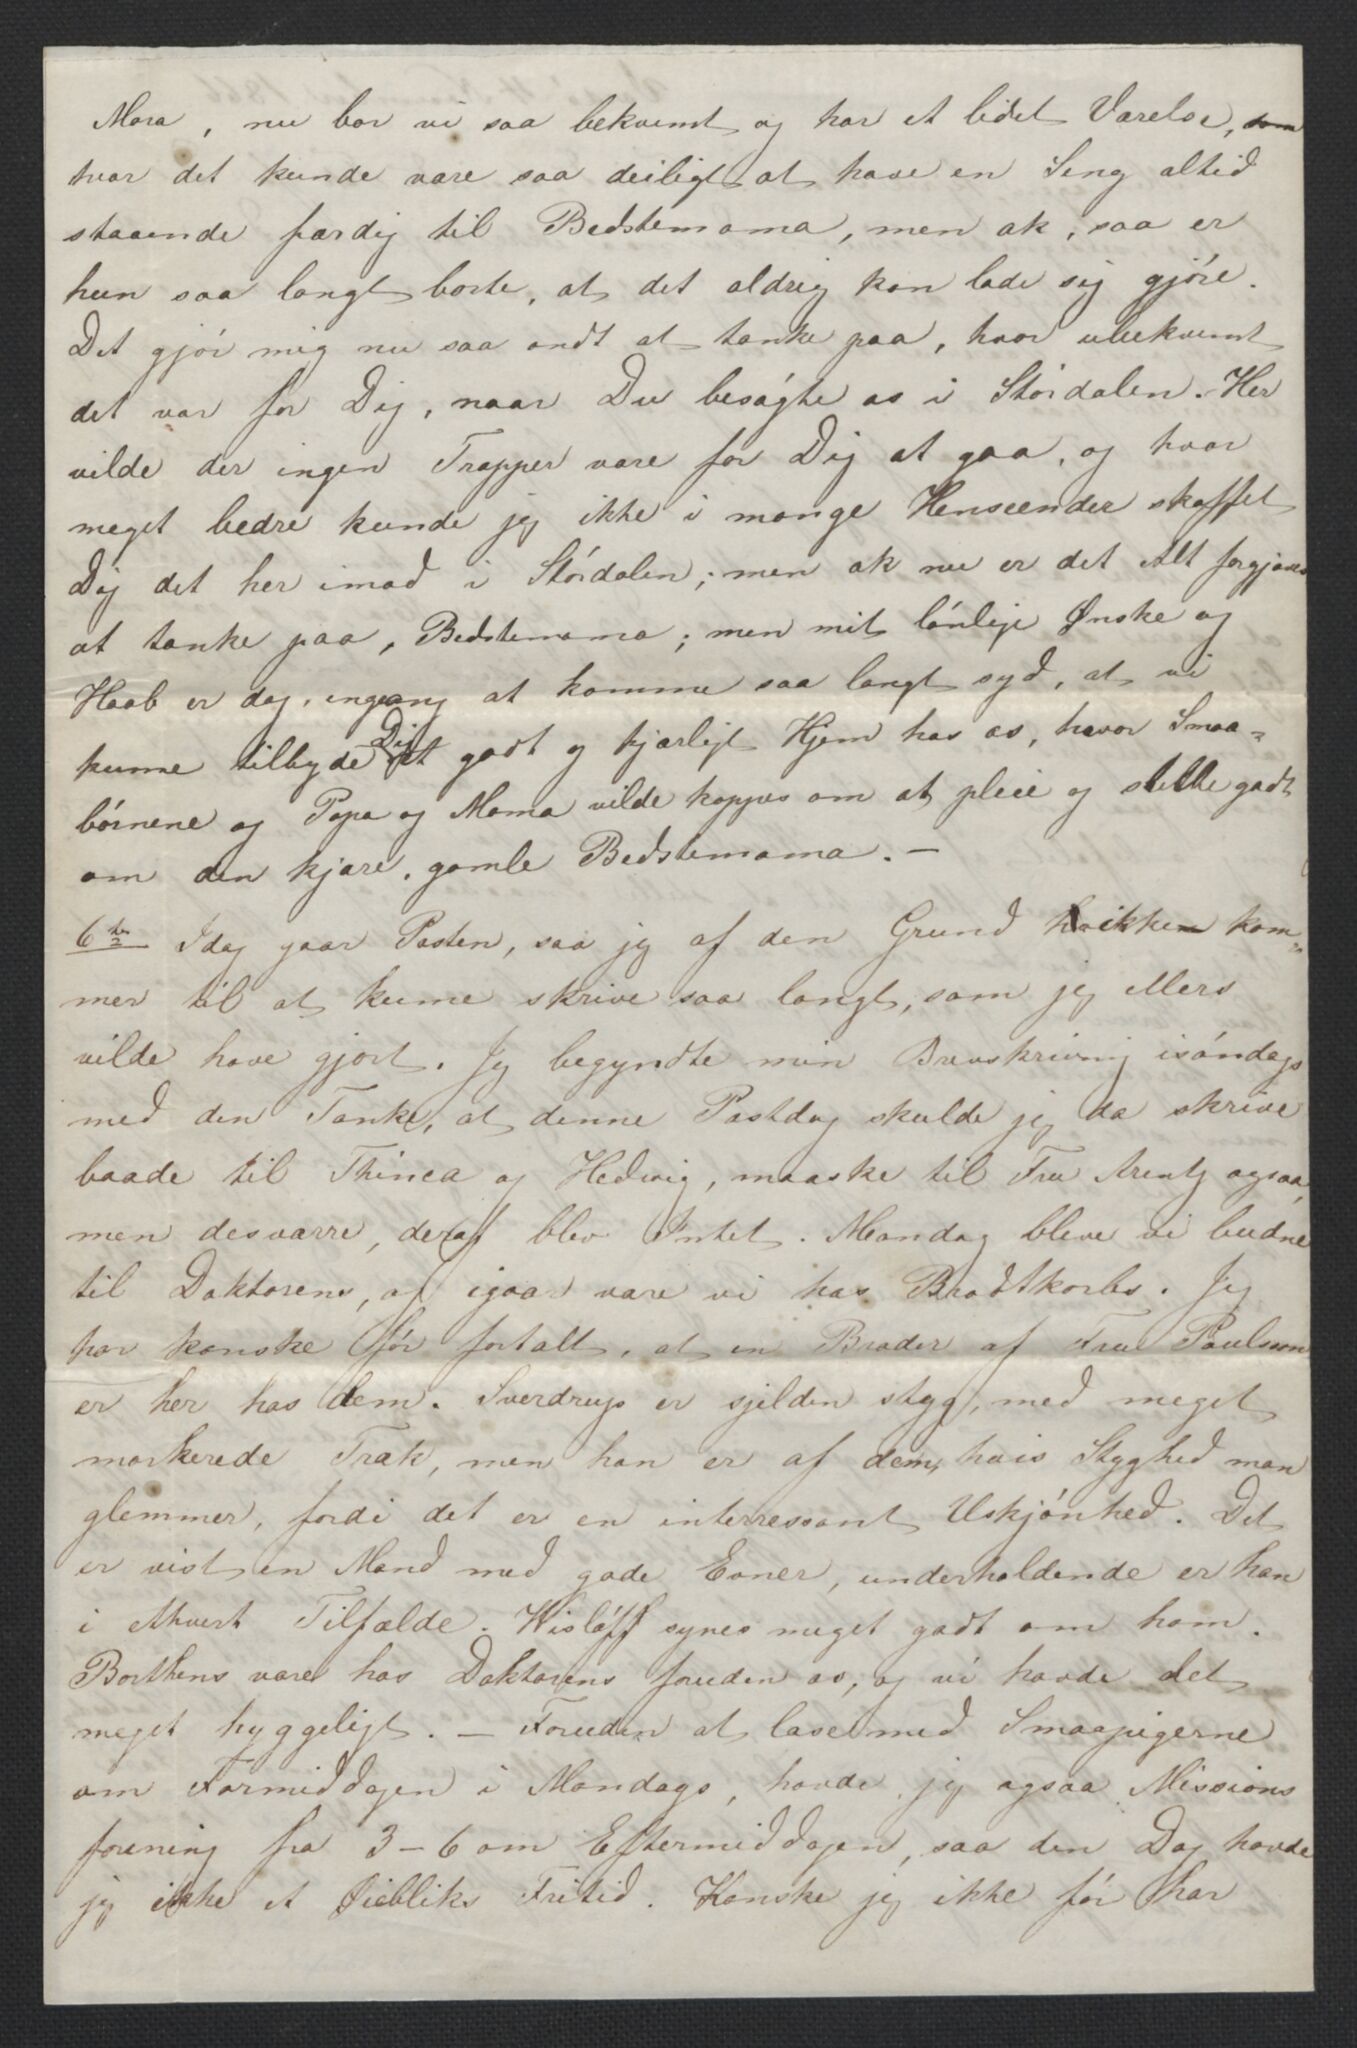 Mora, nu bor vi saa bekvemt og har et lidet Værelse, som
hvor det kunde være saa deiligt at have en Seng altid
staaende færdig til Bedstemama, men ak, saa er
hun saa langt borte, at det aldrig kan lade sig gjöre.
Det gjör mig nu saa ondt at tænke paa, hvor ubekvemt
det var for Dig, naar Du besögte os i Stördalen. Her
vilde der ingen Trapper være for Dig at gaa, og hvor
meget bedre kunde jeg ikke i mange Henseender skaffet
Dig det her imod i Stördalen; men ak nu er det Alt forgjæves
at tænke paa, Bedstemama; men mit lönlige Ønske og
Haab er dog, engang at komme saa langt syd, at vi
kunne tilbyde Dig et godt og kjærligt Hjem hos os, hvor Smaa-
börnene og Papa og Mama vilde kappes om at pleie og stelle godt
om den kjære, gamle Bedstemama. —
6te Idag gaar Posten, saa jeg af den Grund ikke kom-
mer til at kunne skrive saa langt, som jeg ellers
vilde have gjort. Jeg begyndte min Brevskrivning isöndags
med den Tanke, at denne Postdag skulde jeg da skrive
baade til Thinca og Hedvig, maaske til Fru Arentz ogsaa,
men desværre, deraf blev Intet. Mandag bleve vi budne
til Doktorens, og igaar vare vi hos Brodtkorbs. Jeg
har kanske för fortalt, at en Broder af Fru Paulsson
er her hos dem. Sverdrup er sjelden styg, med meget
markerede Træk, men han er af dem, hvis Styghed man
glemmer, fordi det er en interressant Uskjönhed. Det
er vist en Mand med gode Evner, underholdende er han
i ethvert Tilfælde. Wislöff synes meget godt om ham.
Borthens vare hos Doktorens foruden os, og vi havde det
meget hyggeligt. — Foruden at læse med Smaapigerne
om Formiddagen i Mandags, havde jeg ogsaa Missions
forening fra 3-6 om Eftermiddagen, saa den Dag havde
jeg ikke et Øiebliks Fritid. Kanske jeg ikke för har